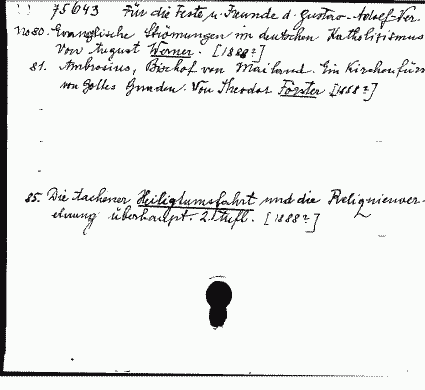 75643 Für die Feste u. Freunde d. Gustav-Adolf-Ver.
No 80. Evangelische Strömungen im deutschen Katholizismus
Von August Werner. [1888?]
81. Ambrosius, Bischof von Mailand. Ein Kirchenfürs
von Gottes Gnaden. Von Theodor Förster [1888?]
85. Die Aachener Heiligtumsfahrt und die Reliquienver-
ehrung überhaupt. 2. Aufl. [1888?]